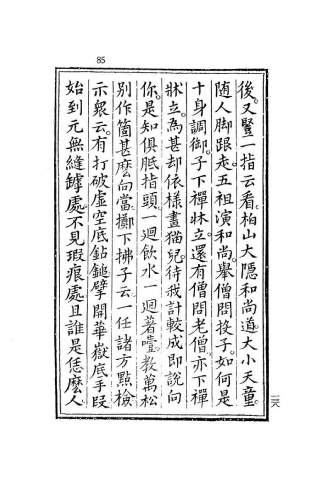 85
後又豎一指云看柏山大隱和尚道大小天童
隨人脚跟走五祖演和尚舉僧問投子如何是
十身調御子下禪牀立還有僧問老僧亦下禪
牀立為甚却依樣畫猫兒待我計較成即說向
你是知俱胝指頭一迴飲水一迴著噎教萬松
別作箇甚麽向當擲下拂子云一任諸方點檢
示衆云有打破虛空底鉆鎚擘開華嶽底手段
始到元無縫罅處不見瑕痕處且誰是恁麽人
二八